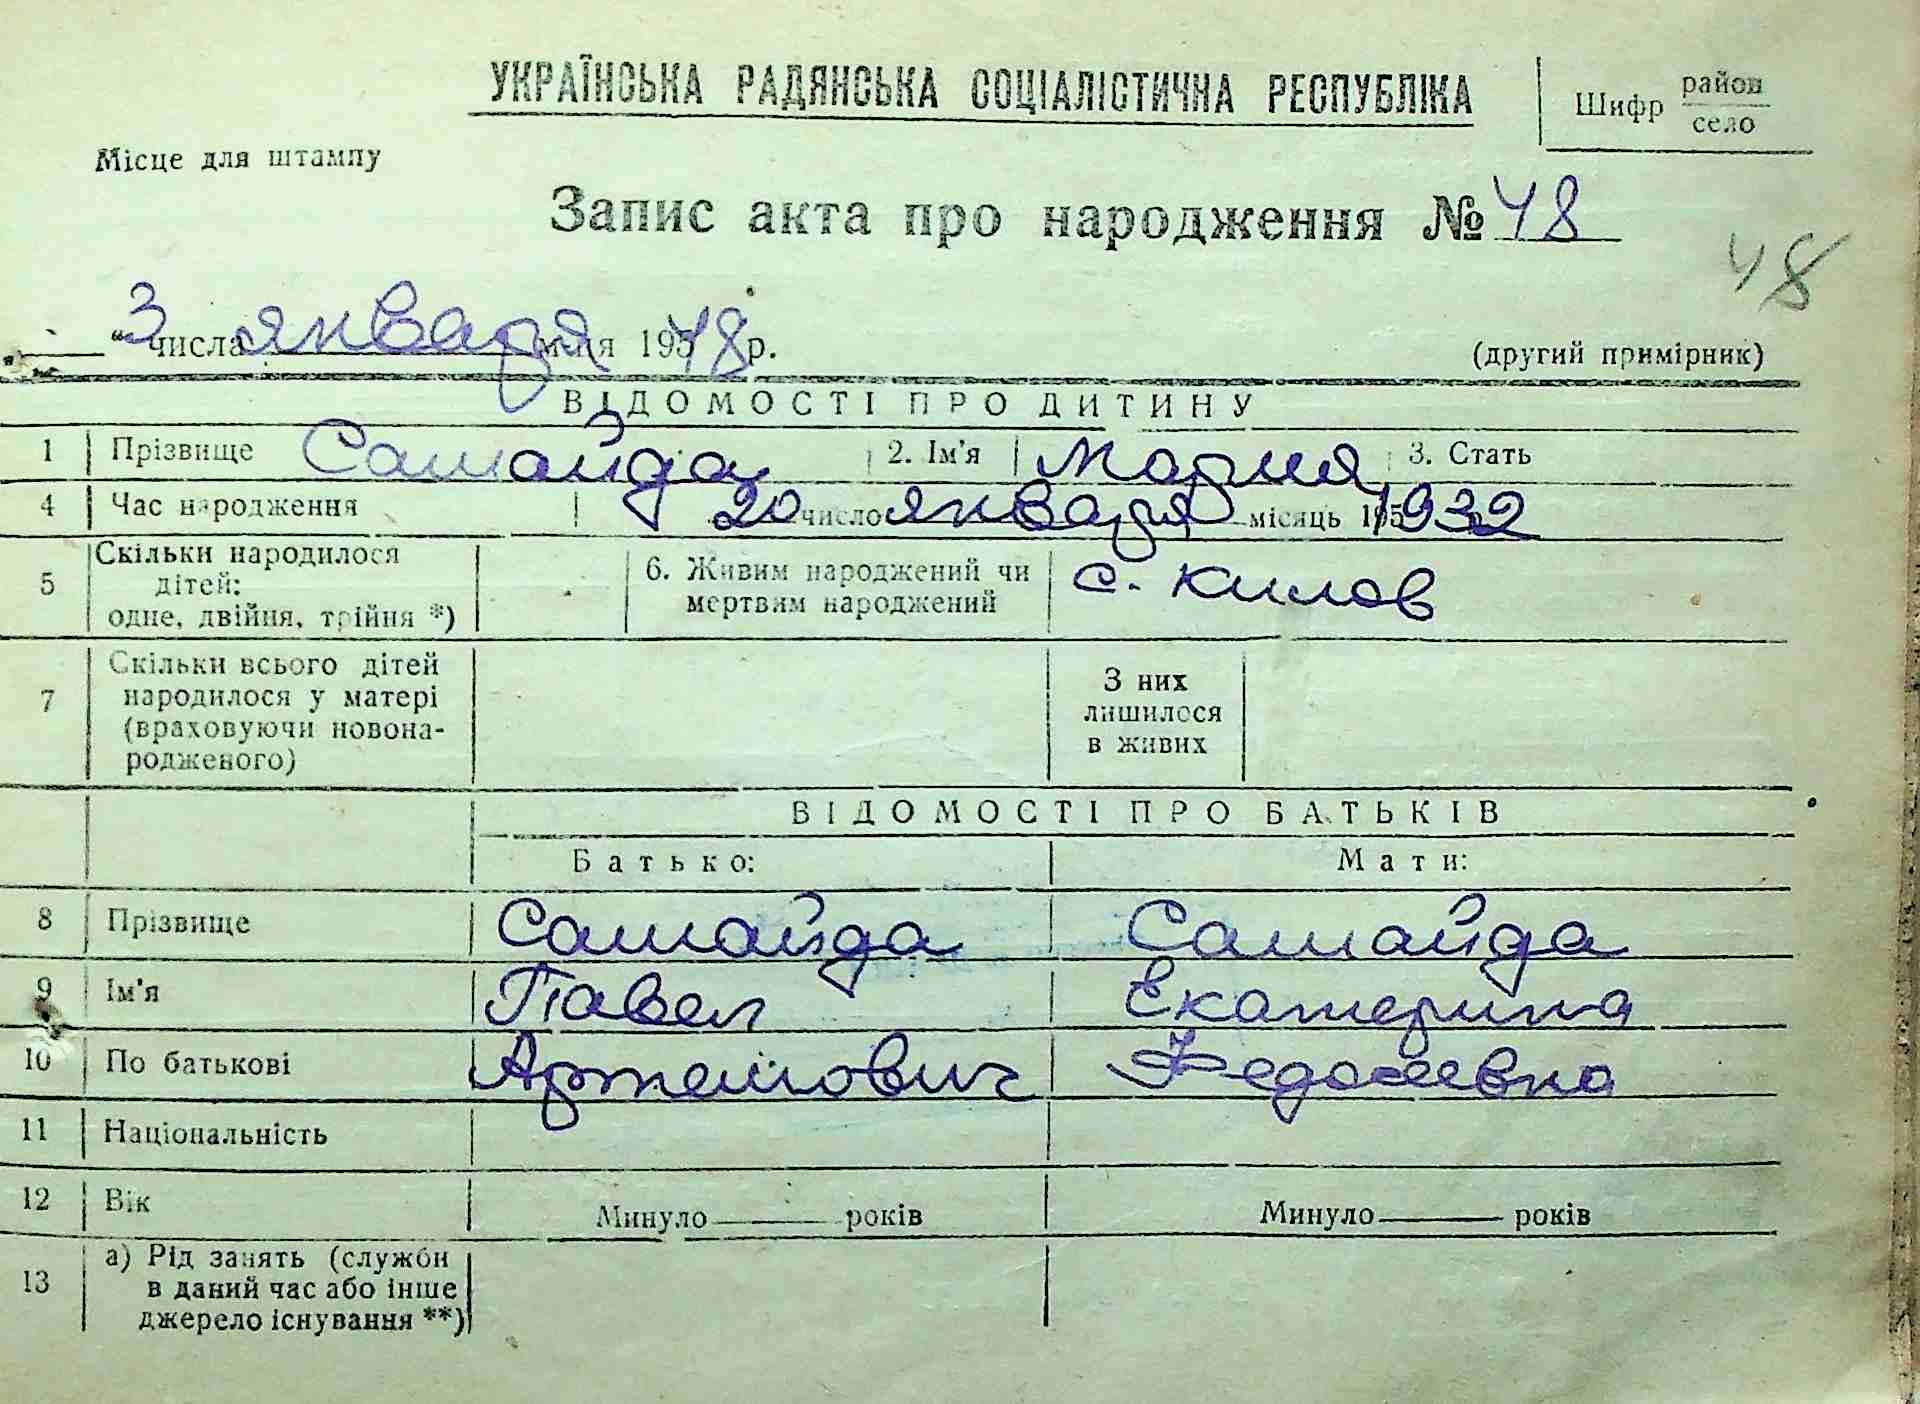 УКРАЇНСЬКА РАДЯНСЬКА СОЦІАЛІСТИЧНА РЕСПУБЛІКА
Шифр район
село
Місце для штампу
Запис акта про народження № 48
48
"3 числа января м-ця 195 48 р.
(другий примірник)
ВІДОМОСТІ ПРО ДИТИНУ
1 Прізвище Самайда 2. Ім'я Мария 3. Стать
4 Час народження 20 число января місяць 195 1932
5 Скільки народилося дітей: одне, двійня, трійня *) 6. Живим народжений чи мертвим народжений с. Килов
7 Скільки всього дітей народилося у матері (враховуючи новонародженого) З них лишилося в живих
ВІДОМОСТІ ПРО БАТЬКІВ
Батько: Мати:
8 Прізвище Самайда Самайда
9 Ім'я Павел Екатерина
10 По батькові Артемович Федосеевна
11 Національність
12 Вік Минуло років Минуло років
13 а) Рід занять (служби в даний час або інше джерело існування **)